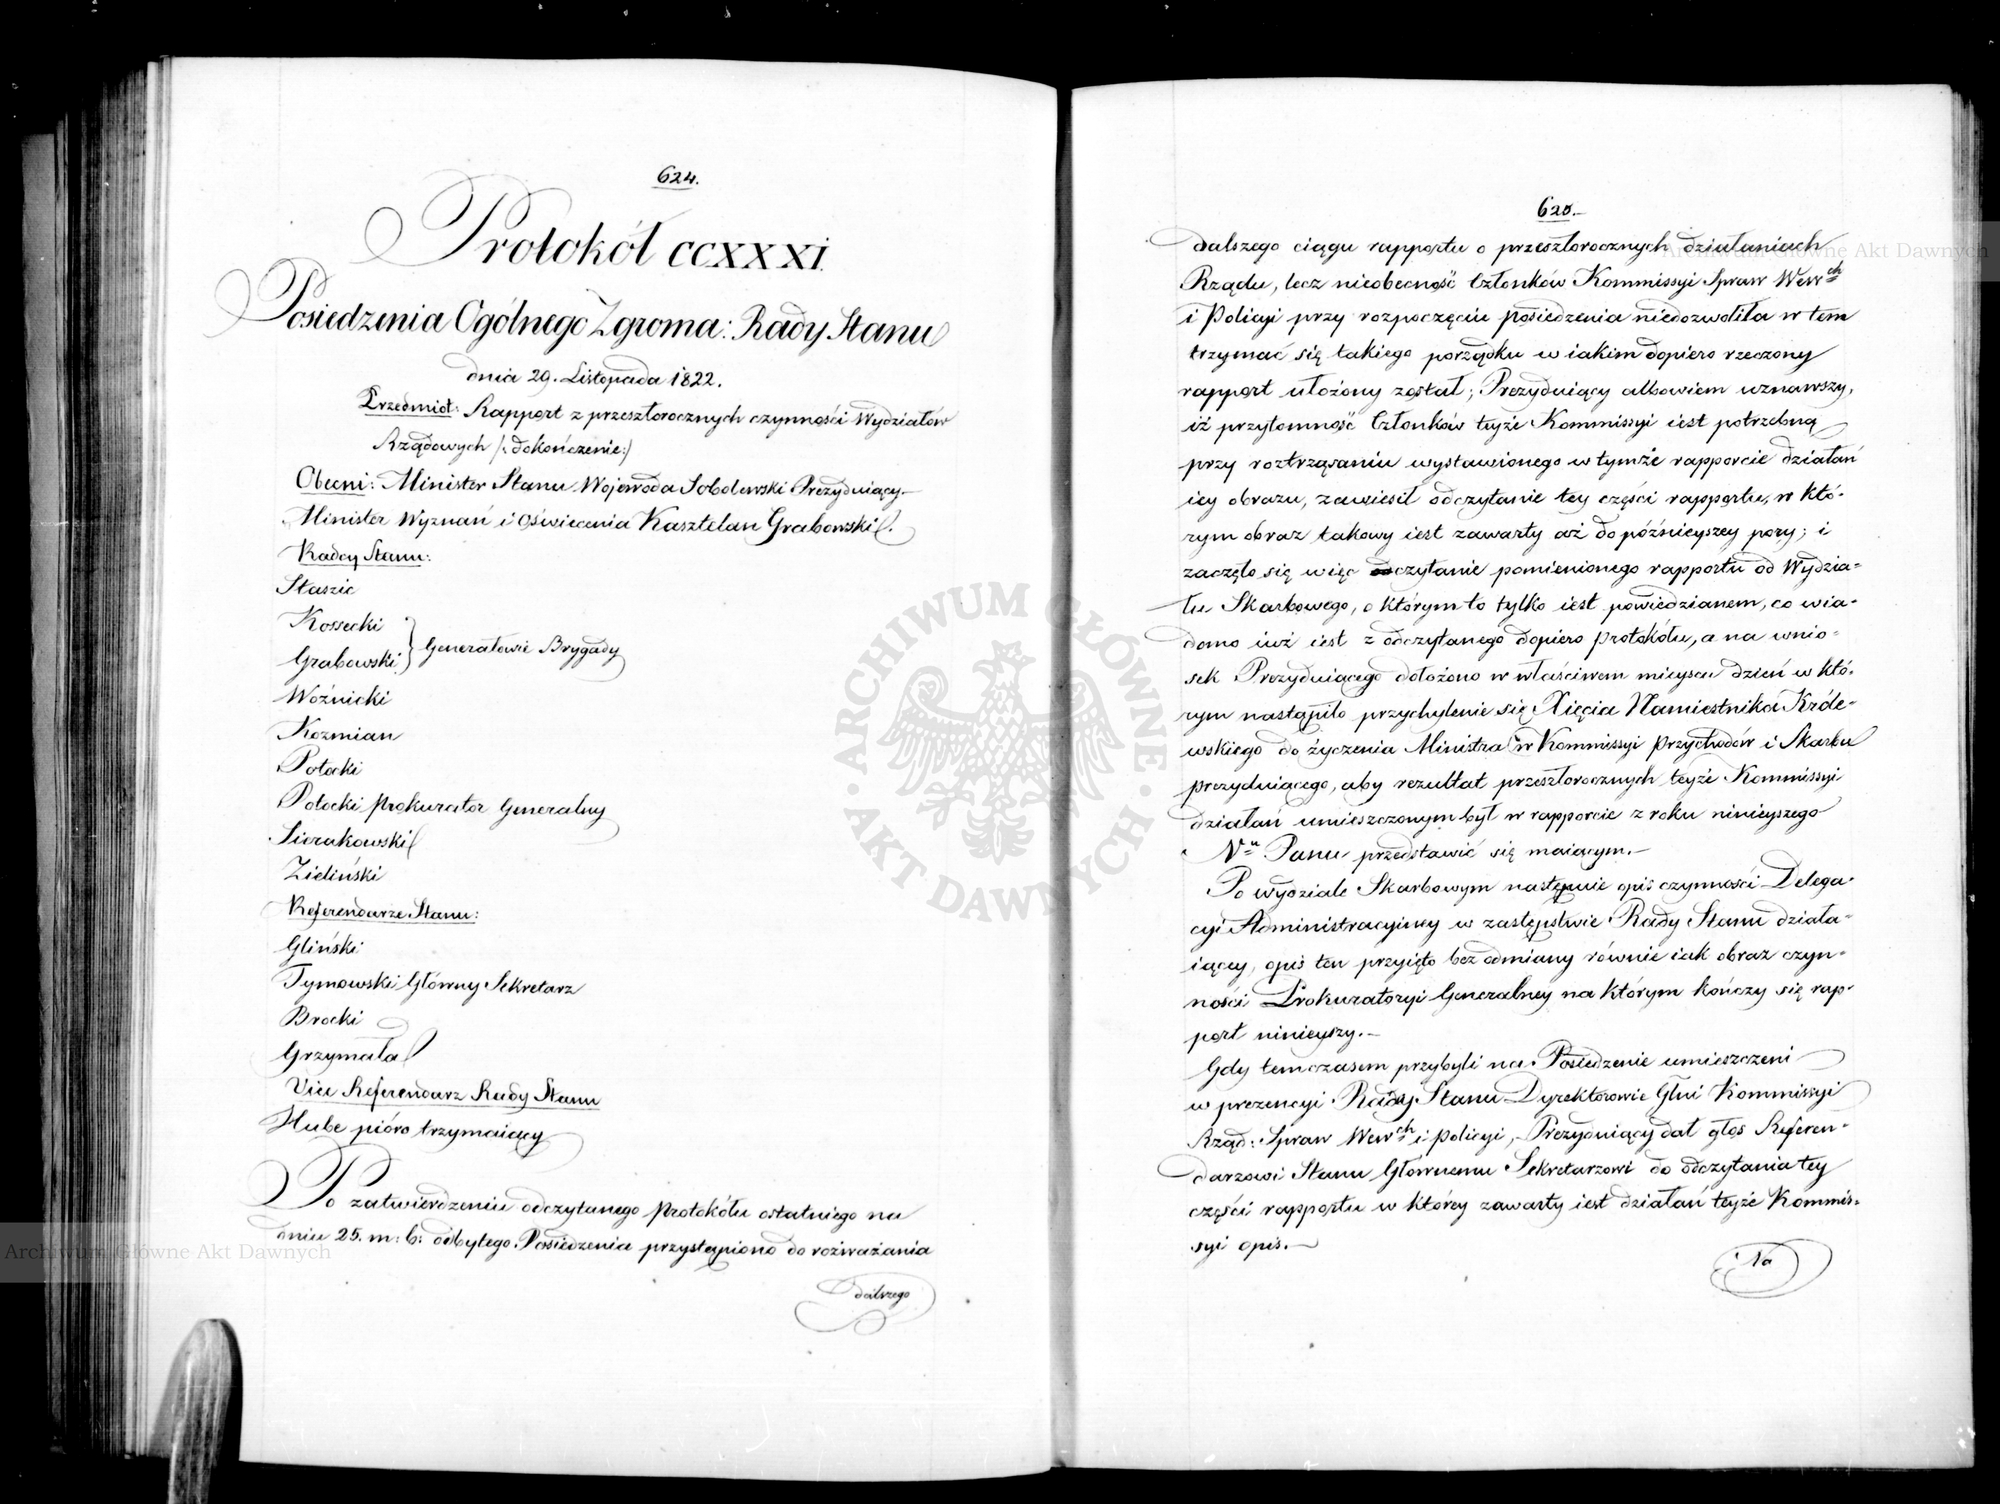 624.
Protokół CCXXXI.
Posiedzenia Ogólnego Zgroma: Rady Stanu
dnia 29. Listopada 1822.
Przedmiot: Rapport z przeszłorocznych czynności Wydziałów
Rządowych /: dokończenie:/
Obecni: Minister Stanu Wojewoda Sobolewski Prezyduiący.
Minister Wyznań i Oświecenia Kasztelan Grabowski.
Radcy Stanu:
Staszic
Kossecki
Grabowski } Generałowie Brygady
Woźnicki
Kozmian
Potocki
Potocki Prokurator Generalny
Sierakowski
Zieliński
Referendarze Stanu:
Gliński
Tymowski Główny Sekretarz
Brocki
Grzymała
Vice Referendarz Rady Stanu
Hube pióro trzymaiący
Po zatwierdzeniu odczytanego Protokółu ostatniego na
dniu 25. m: b: odbytego Posiedzenia przystąpiono do rozważania
dalszego
625.
dalszego ciągu rapportu o przeszłorocznych działaniach
Rządu, lecz nieobecność Członków Kommissyi Spraw Wewch
i Policyi przy rozpoczęciu posiedzenia niedozwoliła w tem
trzymać się takiego porządku w iakim dopiero rzeczony
rapport ułożony został; Prezyduiący albowiem uznawszy,
iż przytomność Członków teyże Kommissyi iest potrzebną
przy roztrząsaniu wystawionego w tymże rapporcie działań
iey obrazu, zawiesił odczytanie tey części rapportu, w któ-
rym obraz takowy iest zawarty aż do późnieyszey pory; i
zaczęło się więc czytanie pomienionego rapportu od Wydzia-
łu Skarbowego, o którym to tylko iest powiedzianem, co wia-
domo iuż iest z odczytanego dopiero protokółu, a na wnio-
sek Prezyduiącego dołożono w właściwem mieyscu dzień w któ-
rym nastąpiło przychylenie się Xięcia Namiestnika Króle-
wskiego do życzenia Ministra w Kommissyi Przychodów i Skarbu
prezyduiącego, aby rezultat przeszłorocznych teyże Kommissyi
działań umieszczonym był w rapporcie z roku ninieyszego
Nu Panu przedstawić się maiącym.-
Po wydziale Skarbowym następuie opis czynności Delega-
cyi Administracyiney w zastępstwie Rady Stanu działa-
iącey, opis ten przyięto bez odmiany równie iak obraz czyn-
ności Prokuratoryi Generalney na którym kończy się rap-
port ninieyszy.-
Gdy temczasem przybyli na Posiedzenie umieszczeni
w prezencyi Rady Stanu Dyrektorowie Głni Kommissyi
Rząd: Spraw Wewch i Policyi, Prezyduiący dał głos Referen-
darzowi Stanu Głównemu Sekretarzowi do odczytania tey
części rapportu w którey zawarty iest działań teyże Kommis-
syi opis.-
Na
ARCHIWUM GŁÓWNE · AKT DAWNYCH ·
Archiwum Główne Akt Dawnych
Archiwum Główne Akt Dawnych